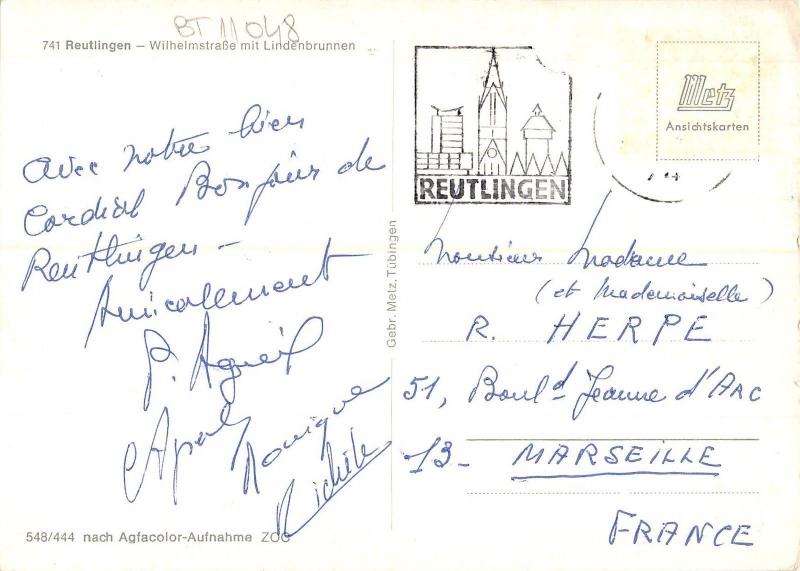 BT 11048
741 Reutlingen — Wilhelmstraße mit Lindenbrunnen
Avec notre bien
Cordial Bonjour de
Reutlingen —
Amicalement
P.
Monique
Michèle
548/444 nach Agfacolor-Aufnahme ZOC
Gebr. Metz, Tübingen
REUTLINGEN
Metz
Ansichtskarten
Monsieur Madame
(et Mademoiselle)
R. HERPE
51, Boul.d Jeanne d'ARC
13 - MARSEILLE
FRANCE